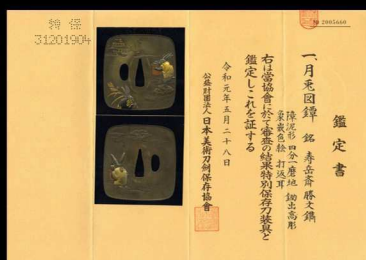 特保
31201904
№ 2005660
鑑定書
一、月兎図鐔 銘 寿岳斎勝文鐫
障泥形 四分一磨地 鋤出高彫
象嵌色絵 打返耳
右は當協會に於て審査の結果特別保存刀装具と
鑑定しこれを証する
令和元年五月二十八日
公益財團法人日本美術刀剣保存協會